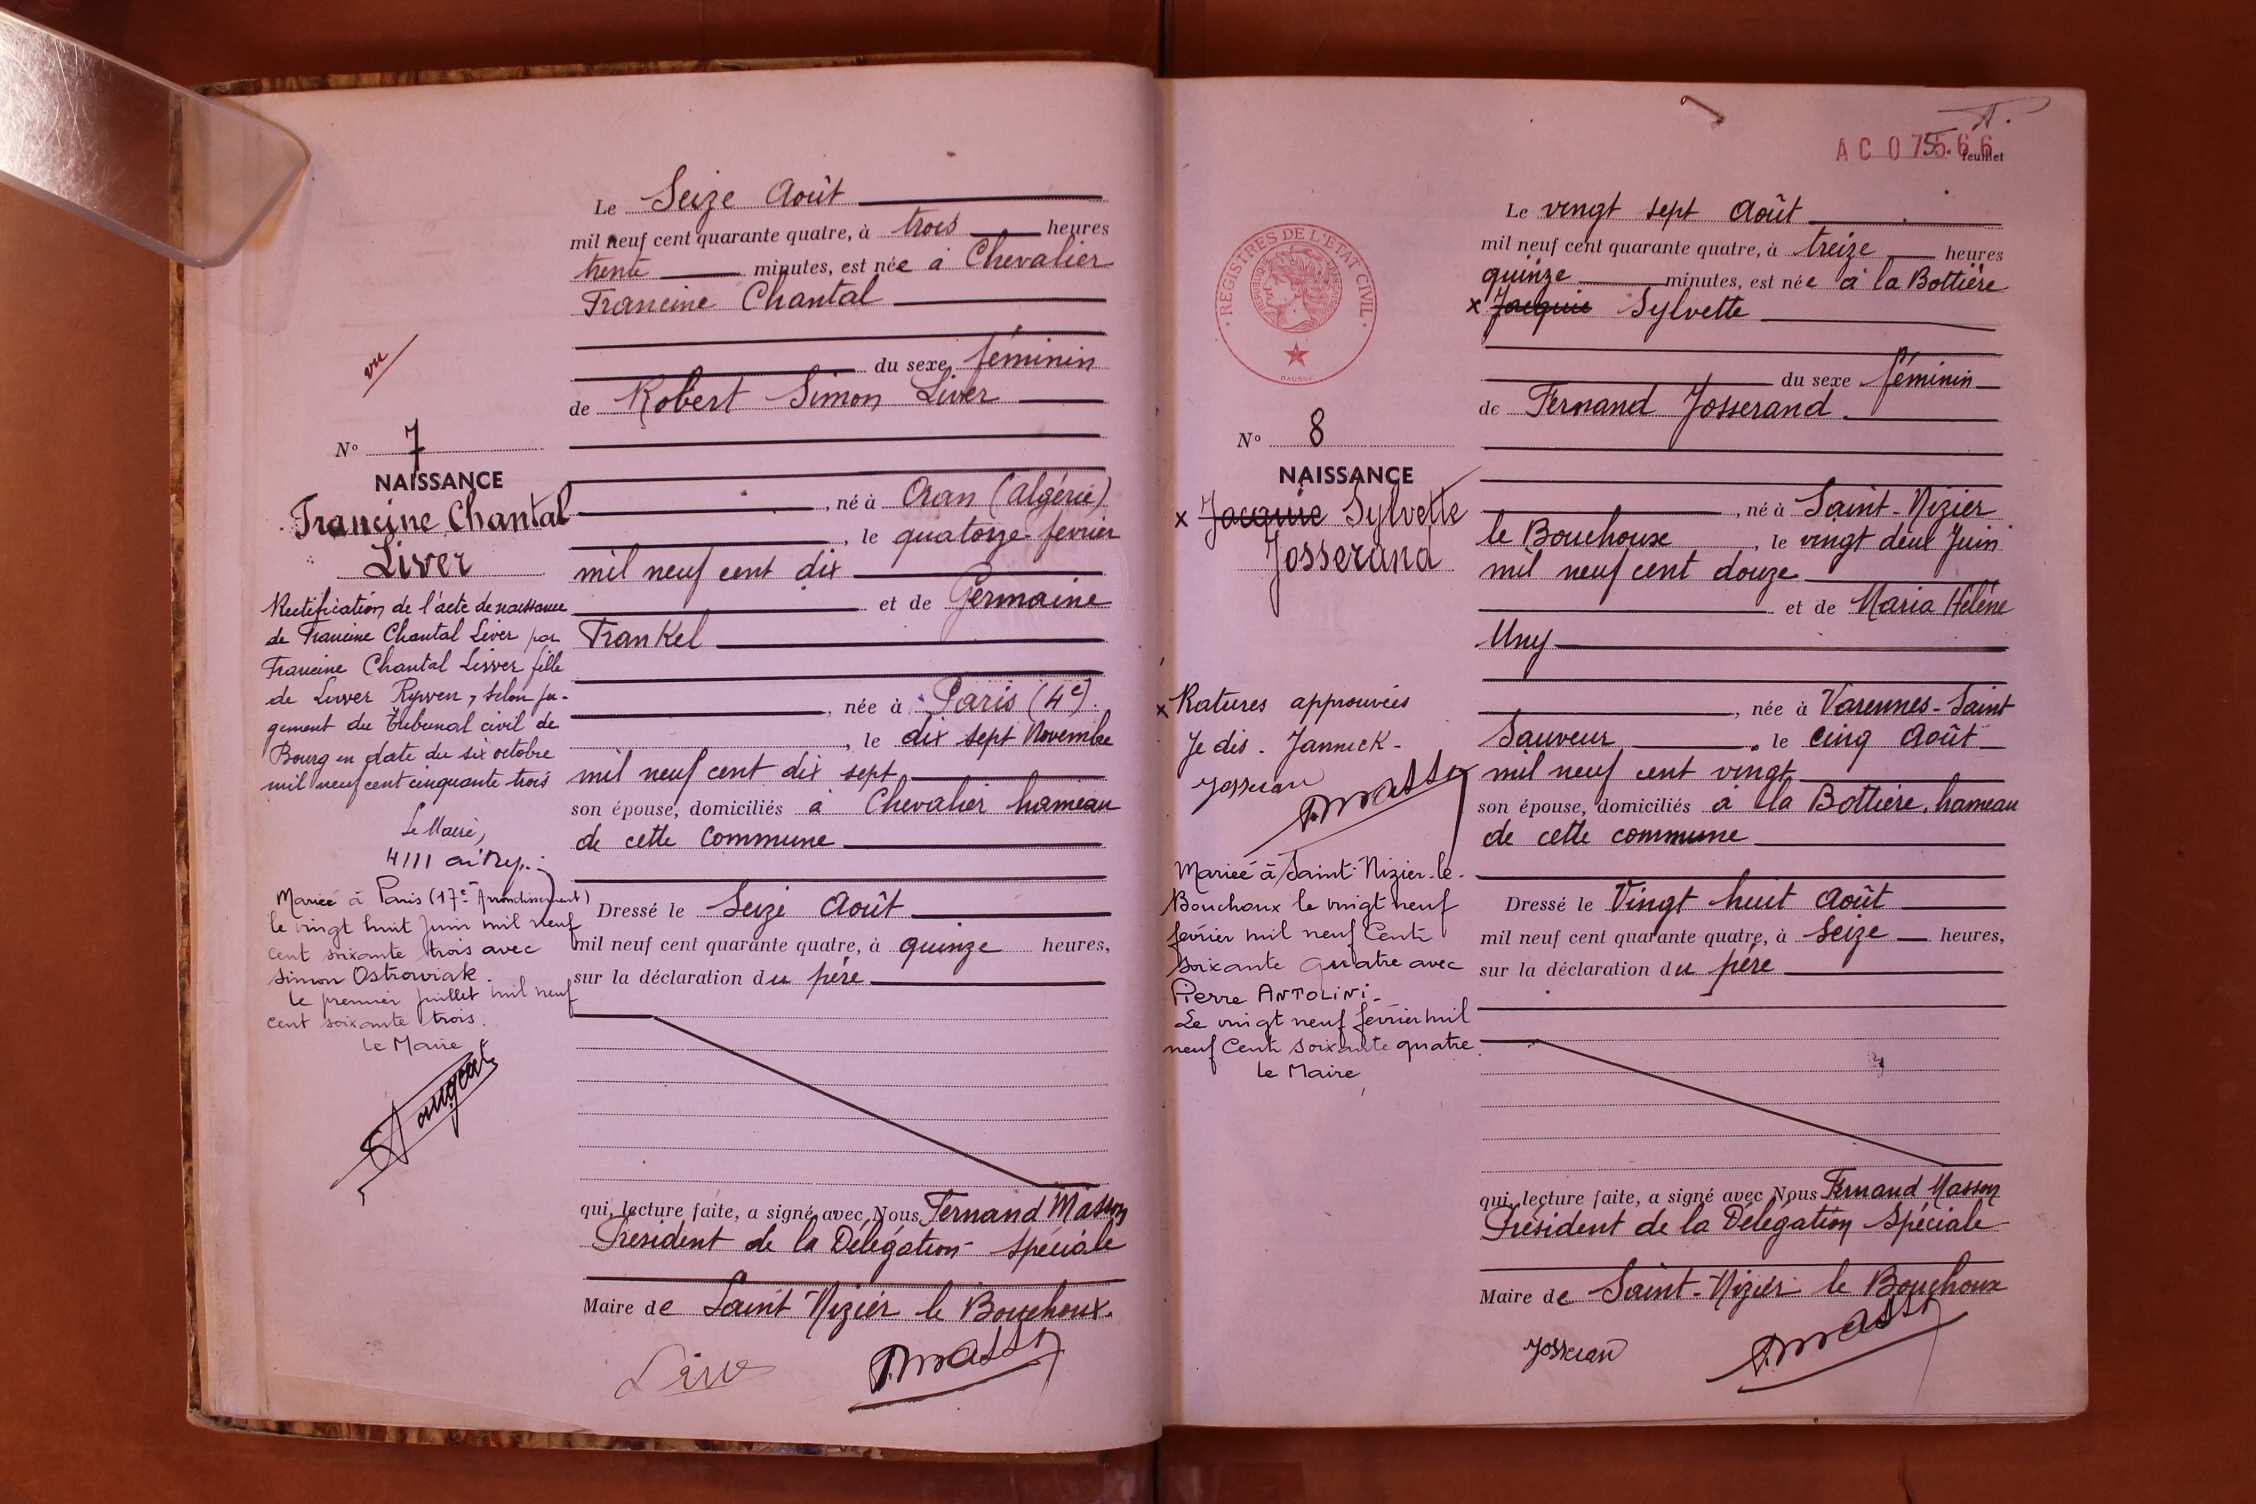 vu
N° 7
NAISSANCE
Francine Chantal
Liver
Rectification de l'acte de naissance
de Francine Chantal Liver par
Francine Chantal Lisver fille
de Liwer Rywen, selon ju-
gement du Tribunal civil de
Bourg en date du six octobre
mil neuf cent cinquante trois
Le Maire,
Mariée à Paris (17e Arrondissement)
le vingt huit Juin mil neuf
cent soixante trois avec
Simon Ostrowiak.
le premier juillet mil neuf
cent soixante trois.
Le Maire
Le Seize Août
mil neuf cent quarante quatre, à trois heures
trente minutes, est née à Chevalier
Francine Chantal
du sexe féminin
de Robert Simon Liver
, né à Oran (Algérie)
, le quatorze février
mil neuf cent dix
et de Germaine
Frankel
, née à Paris (4e).
, le dix sept Novembre
mil neuf cent dix sept
son épouse, domiciliés à Chevalier hameau
de cette commune
Dressé le Seize Août
mil neuf cent quarante quatre, à quinze heures,
sur la déclaration du père
qui, lecture faite, a signé avec Nous Fernand Masson
Président de la Délégation Spéciale
Maire de Saint Nizier le Bouchoux.
AC 075566
5. feuillet
REGISTRES DE L'ETAT CIVIL
N° 8
NAISSANCE
x Jacquie Sylvette
Josserand
x Ratures approuvées
Je dis. Jannick-
Josseran
Mariée à Saint-Nizier-le-
Bouchoux le vingt neuf
février mil neuf Cent
soixante quatre avec
Pierre ANTOLINI-
Le vingt neuf février mil
neuf Cent soixante quatre.
Le Maire
Le vingt sept Août
mil neuf cent quarante quatre, à treize heures
quinze minutes, est née à la Bottière
x Jacquie Sylvette
du sexe féminin
de Fernand Josserand.
, né à Saint-Nizier
le Bouchoux, le vingt deux Juin
mil neuf cent douze
et de Maria Hélène
Uny
, née à Varennes-Saint
Sauveur, le cinq Août
mil neuf cent vingt
son épouse, domiciliés à la Bottière, hameau
de cette commune
Dressé le Vingt huit Août
mil neuf cent quarante quatre, à Seize heures,
sur la déclaration du père
qui, lecture faite, a signé avec Nous Fernand Masson
Président de la Délégation Spéciale
Maire de Saint-Nizier le Bouchoux
Josseran